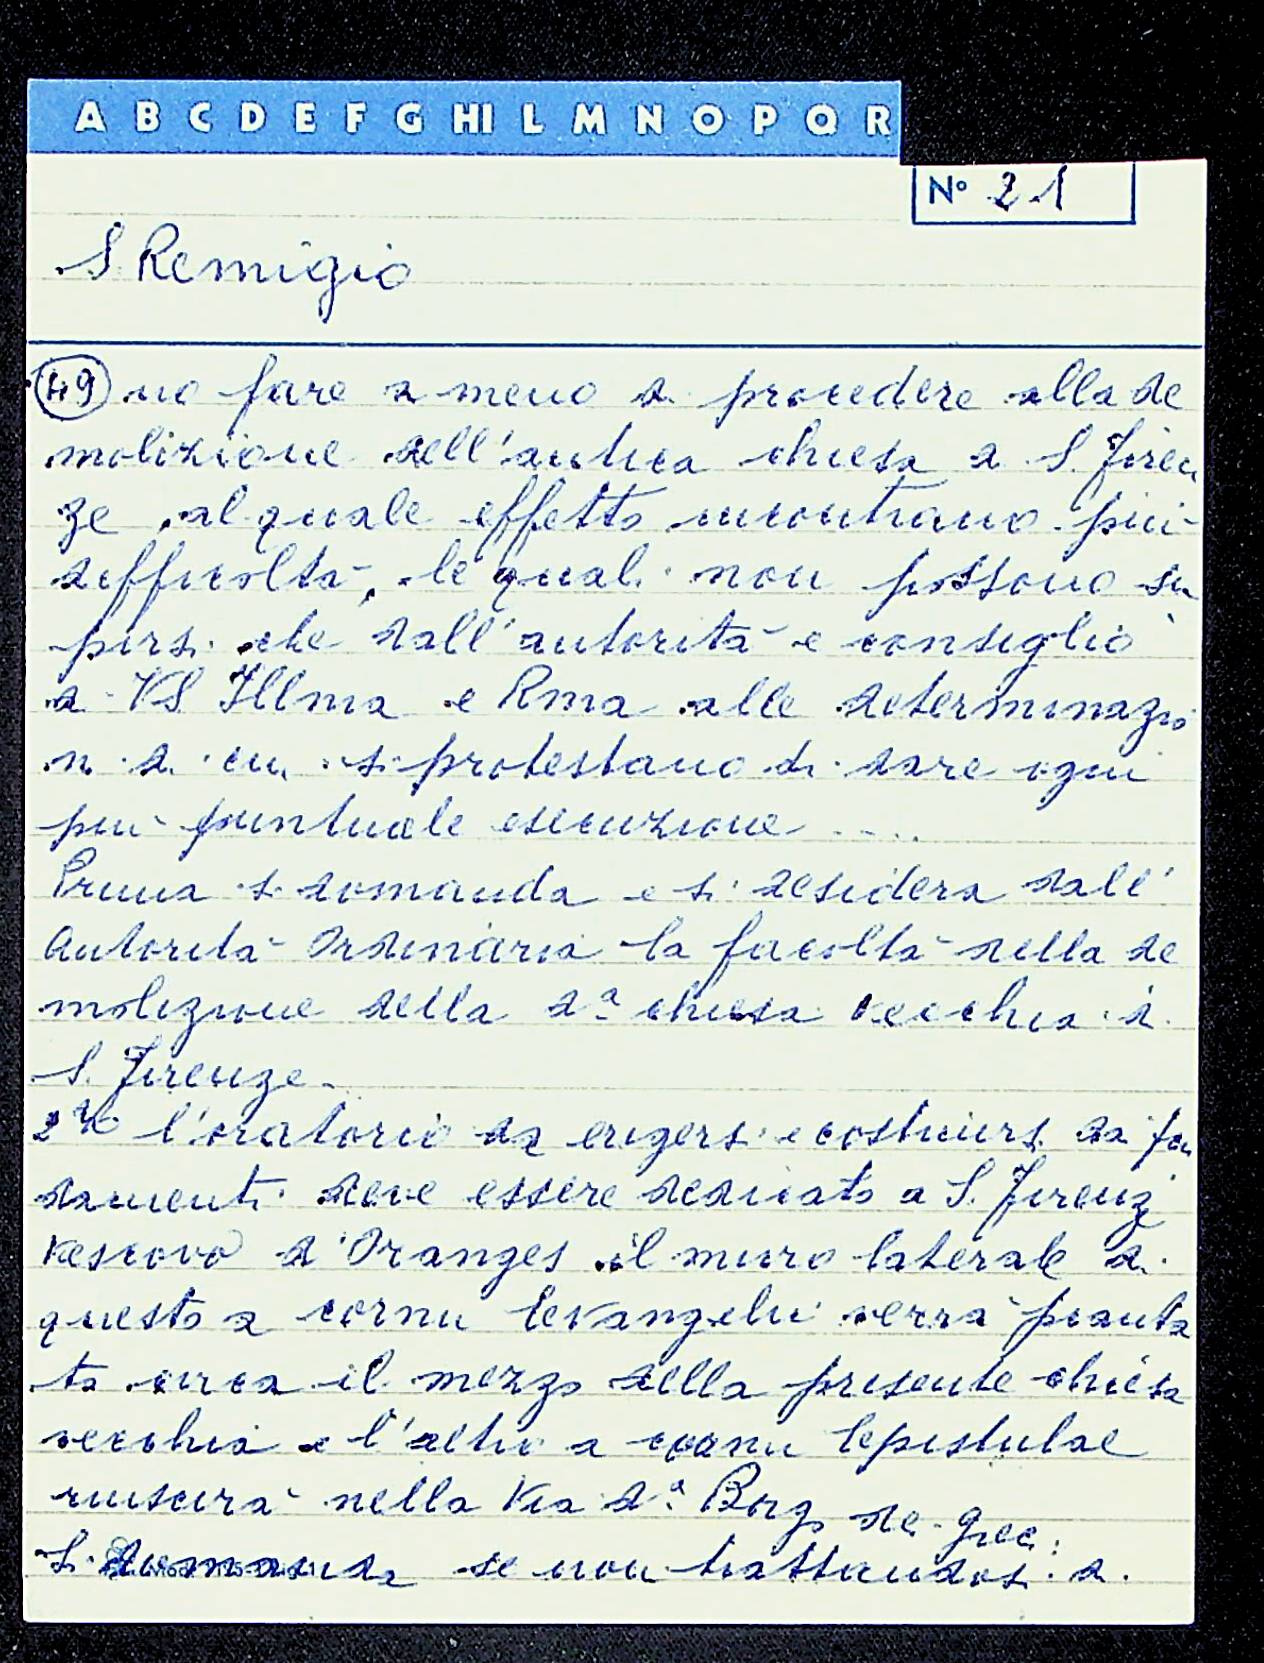 A B C D E F G HI L M N O P Q R
N° 21
S. Remigio
49 no fare a meno di procedere alla de
molizione dell'antica chiesa di S. Firen
ze, al quale effetto incontrano più
difficoltà, le quali non possono su
persi che dall'autorità e consiglio
di VS Illma e Rma alle determinazio
ni di cui si protestano di dare ogni
più puntuale esecuzione ....
Prima si domanda e si desidera dall'
Autorità Ordinaria la facoltà della de
molizione della da chiesa vecchia di
S. Firenze.
2do l'oratorio da erigersi e costruirsi da fon
damenti deve essere dedicato a S. Firenz
vescovo d'Oranges il muro laterale di
questo a cornu Evangelii verrà pianta
to circa il mezzo della presente chiesa
vecchia e l'altro a cornu Epistulae
riuscirà nella Via da Borgo de Greci:
Si domanda se non trattandosi di